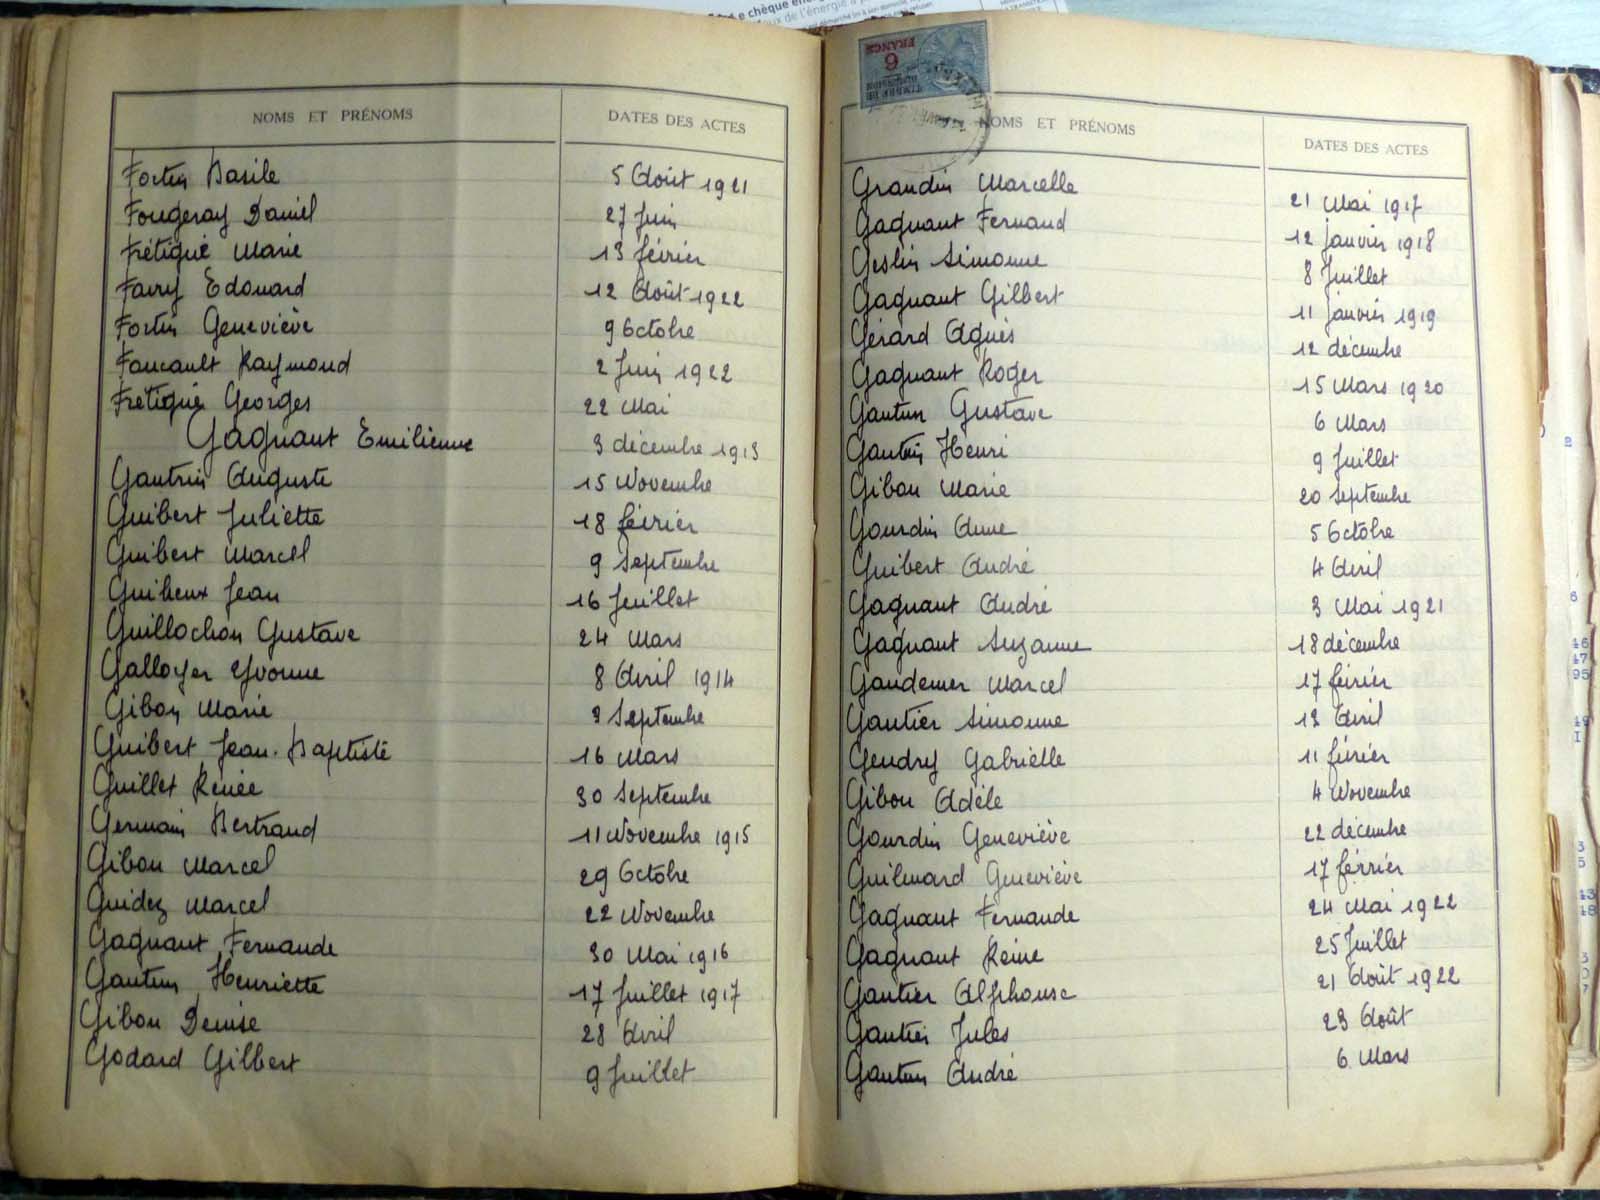 e chèque éner
NOMS ET PRÉNOMS DATES DES ACTES
Fortin Basile 5 Août 1921
Fougeray Daniel 27 Juin
Frétigné Marie 13 février
Favry Edouard 12 Août 1922
Fortin Geneviève 9 Octobre
Foucault Raymond 2 Juin 1922
Frétigné Georges 22 Mai
Gagnant Emilienne 3 décembre 1913
Gautrin Auguste 15 Novembre
Guibert Juliette 18 février
Guibert Marcel 9 Septembre
Guiheux Jean 16 Juillet
Guillochon Gustave 24 Mars
Galloyer Yvonne 8 Avril 1914
Gibon Marie 3 Septembre
Guibert Jean-Baptiste 16 Mars
Guillet Renée 30 Septembre
Germain Bertrand 11 Novembre 1915
Gibon Marcel 29 Octobre
Guidez Marcel 22 Novembre
Gagnant Fernande 30 Mai 1916
Gautrin Henriette 17 Juillet 1917
Gibon Denise 28 Avril
Godard Gilbert 9 Juillet
TIMBRE DE DIMENSION
6
FRANCS
NOMS ET PRÉNOMS DATES DES ACTES
Grandin Marcelle 21 Mai 1917
Gagnant Fernand 12 janvier 1918
Geslin Simonne 8 Juillet
Gagnant Gilbert 11 janvier 1919
Gérard Agnès 12 décembre
Gagnant Roger 15 Mars 1920
Gautrin Gustave 6 Mars
Gautrin Henri 9 Juillet
Gibon Marie 20 Septembre
Gourdin Anne 5 Octobre
Guibert André 4 Avril
Gagnant André 3 Mai 1921
Gagnant Suzanne 18 décembre
Gaudemer Marcel 17 février
Gautier Simonne 13 Avril
Gendry Gabrielle 11 février
Gibon Adèle 4 Novembre
Gourdin Geneviève 22 décembre
Guilmard Geneviève 17 février
Gagnant Fernande 24 Mai 1922
Gagnant Reine 25 Juillet
Gautier Alphonse 21 Août 1922
Gautier Jules 23 Août
Gautrin André 6 Mars